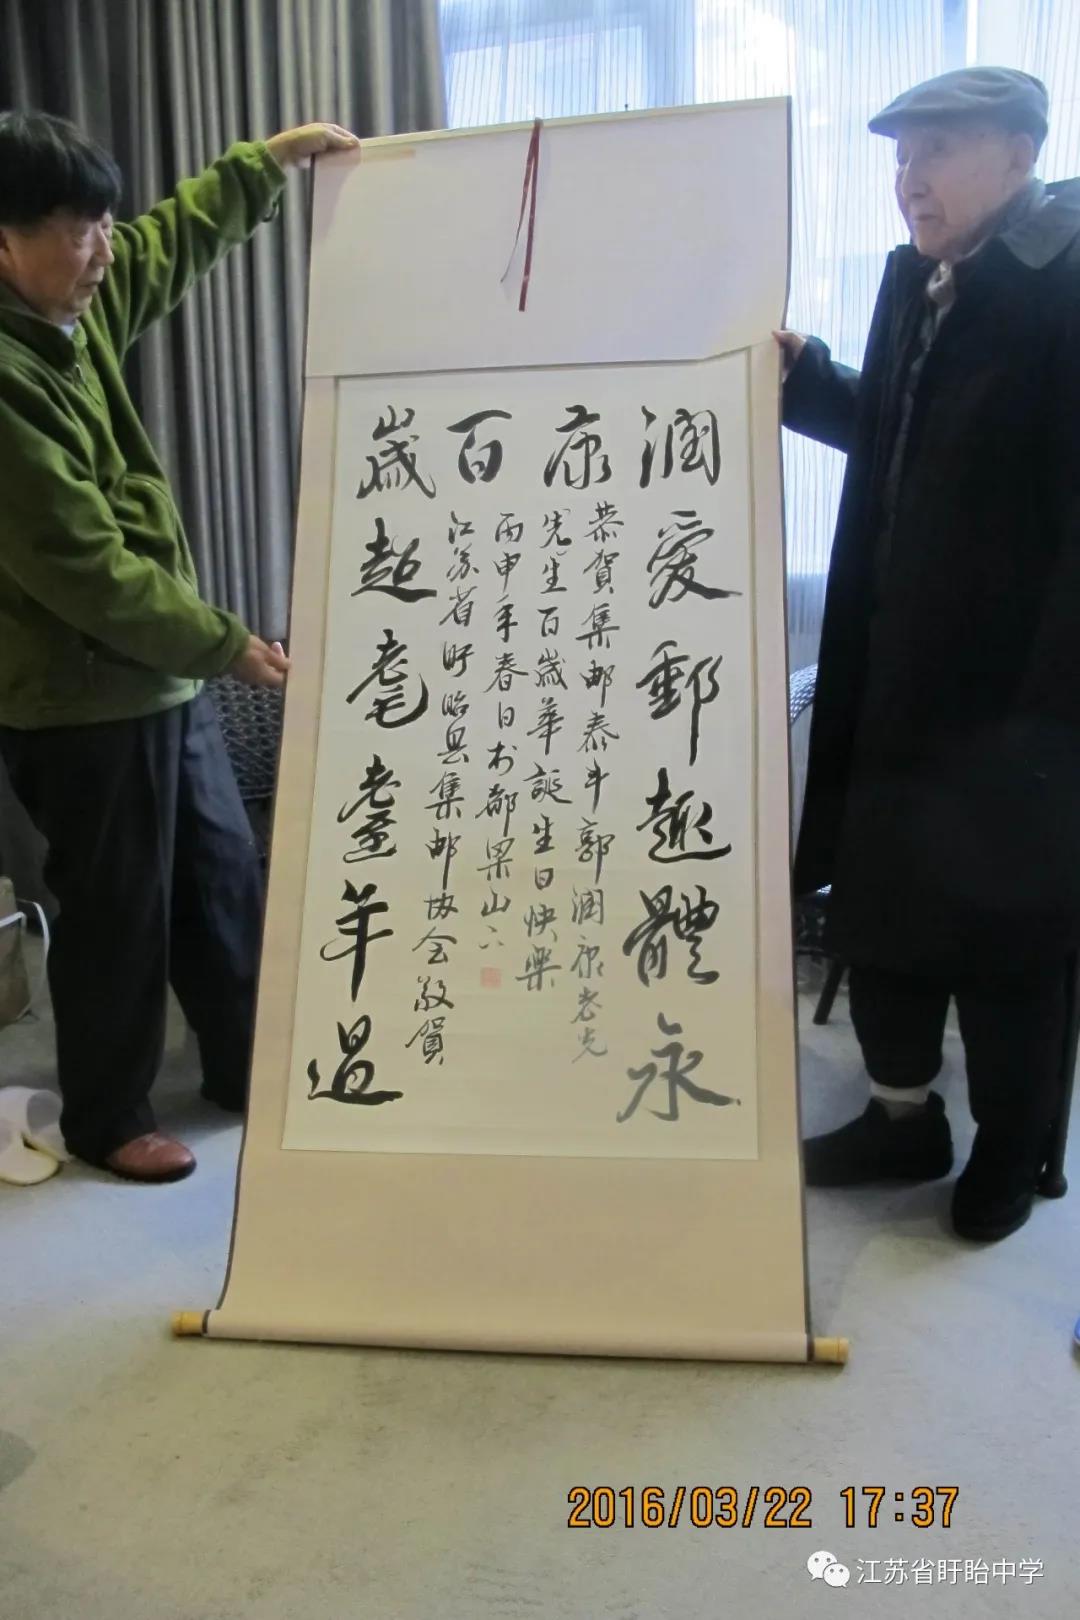 潤愛郵趣體永
康
百
歲超耄耋年過
恭賀集邮泰斗郭潤康老先
先生百歲華誕生日快樂
丙申年春日於都梁山下
江苏省盱眙县集邮协会敬賀
2016/03/22 17:37
江苏省盱眙中学